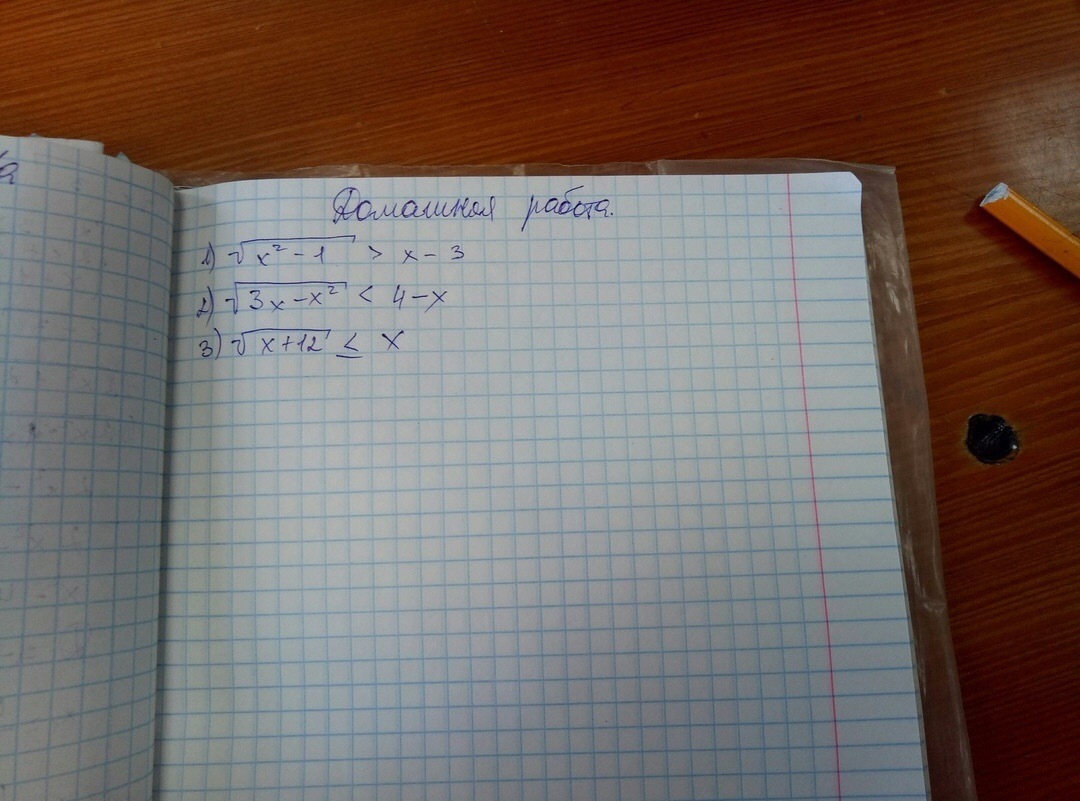 Домашняя работа.
1) √x² - 1 > x - 3
2) √3x - x² < 4 - x
3) √x + 12 ≤ x